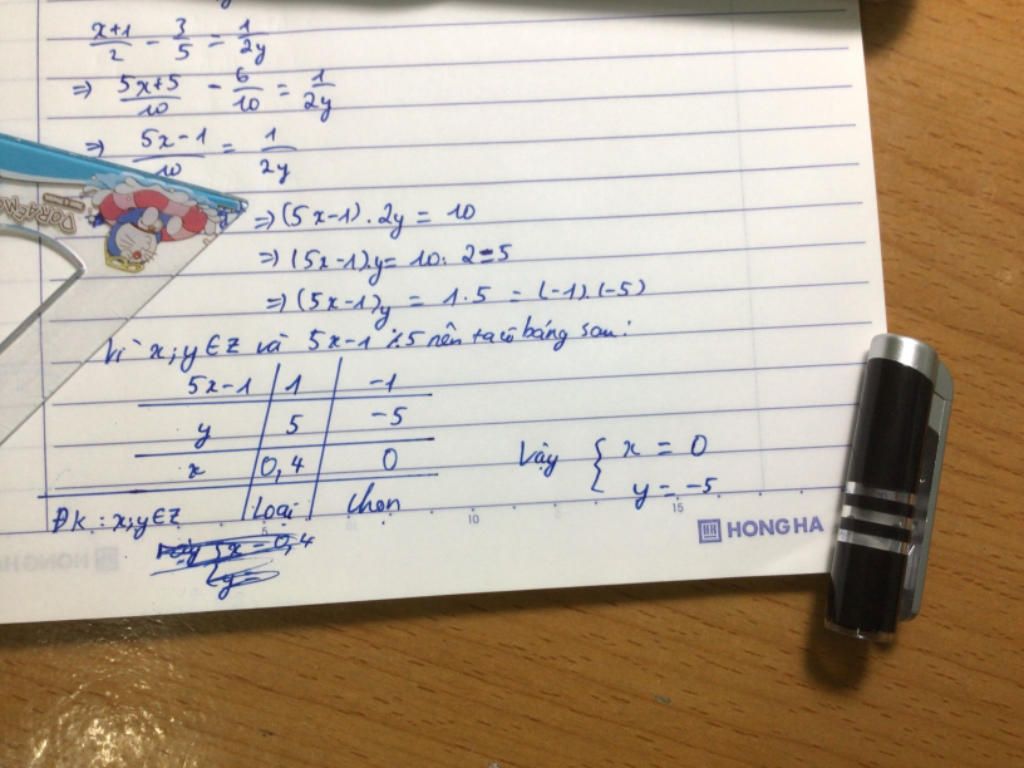 x+1/2 - 3/5 = 1/2y
=> 5x+5/10 - 6/10 = 1/2y
=> 5x-1/10 = 1/2y
=> (5x-1).2y = 10
=> (5x-1).y = 10:2=5
=> (5x-1)y = 1.5 = (-1).(-5)
Vì x;y∈Z và 5x-1 ⋮̸ 5 nên ta có bảng sau:
5x-1 | 1 | -1
y | 5 | -5
x | 0,4 | 0
ĐK: x;y∈Z | Loại | Chọn
Vậy { x = 0
y = -5
5 10 15
HONG HA
DORAEMON